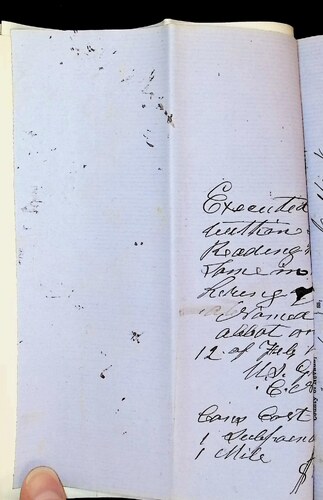 Executed
within
Reading
same in
hering
named
abbot on
12 of Feby
U.S.
Cons Cost
1 Subpoena
1 Mile
$